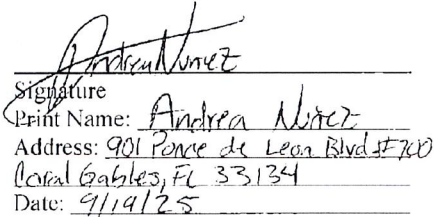 Andrea Nuñez
Signature
Print Name: Andrea Nuñez
Address: 901 Ponce de Leon Blvd #700
Coral Gables, FL 33134
Date: 9/19/25